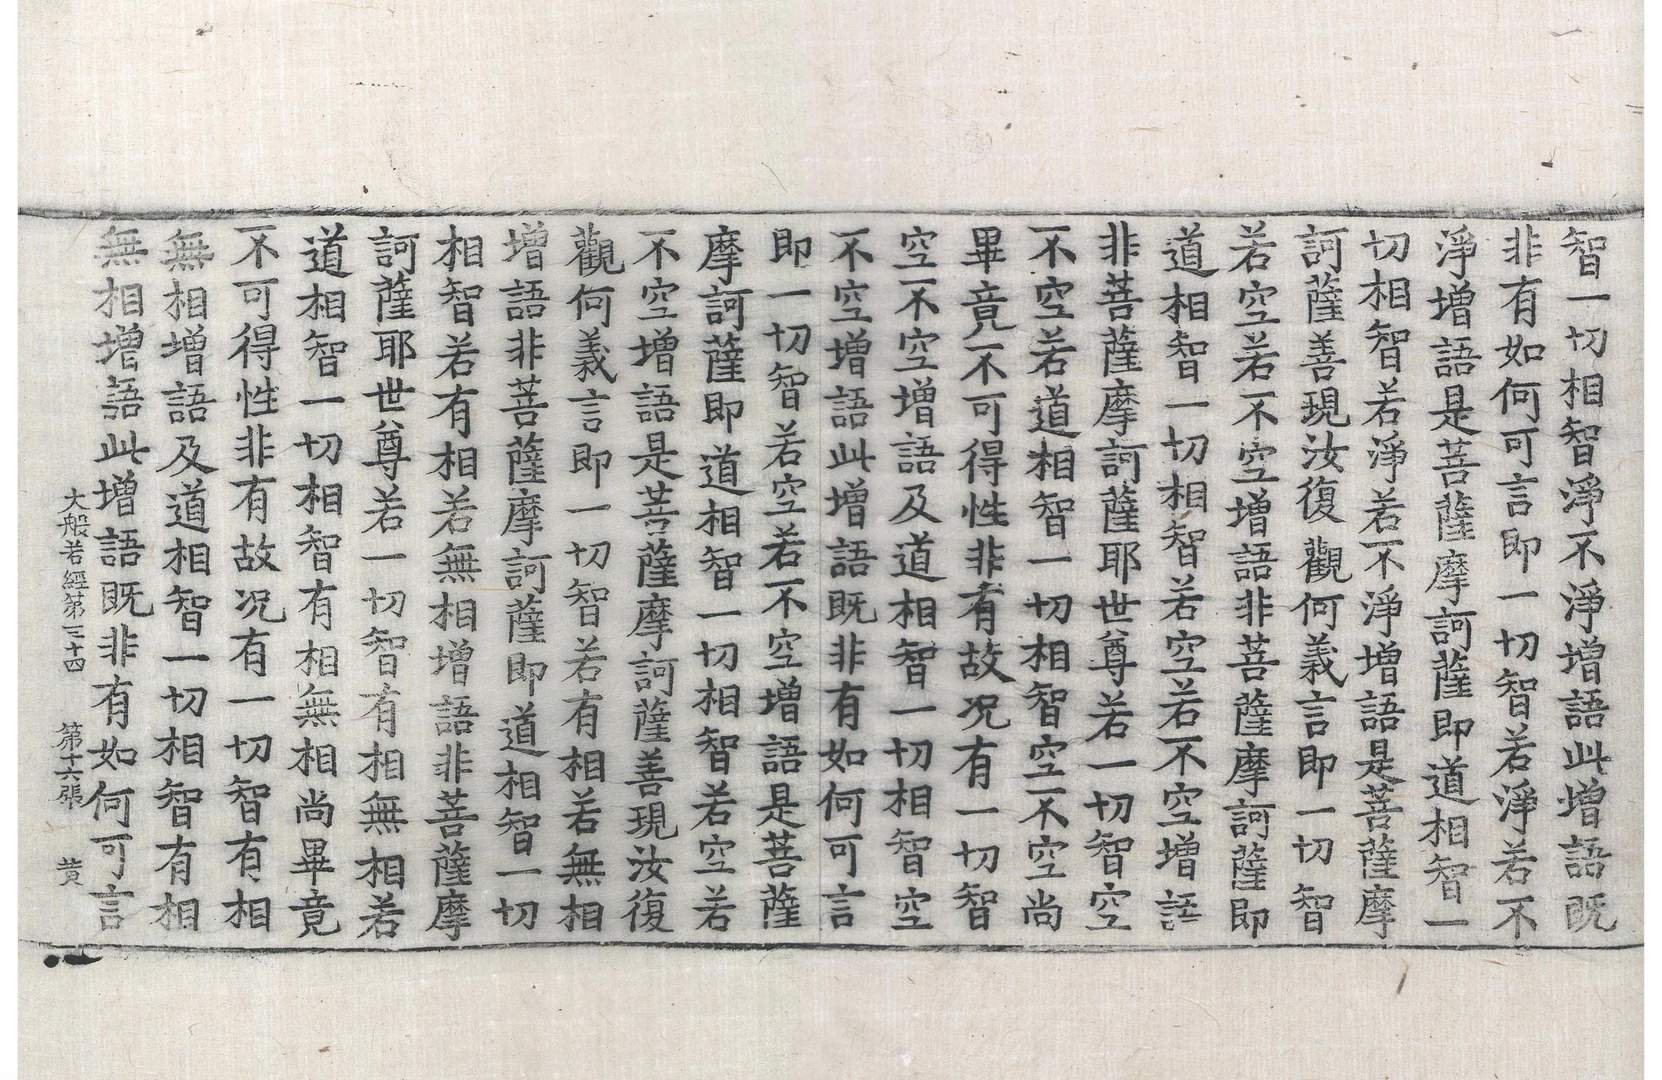 智一切相智淨不淨增語此增語既
非有如何可言即一切智若淨若不
淨增語是菩薩摩訶薩即道相智一
切相智若淨若不淨增語是菩薩摩
訶薩善現汝復觀何義言即一切智
若空若不空增語非菩薩摩訶薩即
道相智一切相智若空若不空增語
非菩薩摩訶薩耶世尊若一切智空
不空若道相智一切相智空不空尚
畢竟不可得性非有故况有一切智
空不空增語及道相智一切相智空
不空增語此增語既非有如何可言
即一切智若空若不空增語是菩薩
摩訶薩即道相智一切相智若空若
不空增語是菩薩摩訶薩善現汝復
觀何義言即一切智若有相若無相
增語非菩薩摩訶薩即道相智一切
相智若有相若無相增語非菩薩摩
訶薩耶世尊若一切智有相無相若
道相智一切相智有相無相尚畢竟
不可得性非有故况有一切智有相
無相增語及道相智一切相智有相
無相增語此增語既非有如何可言
大般若經第三十四 第十六張 黃